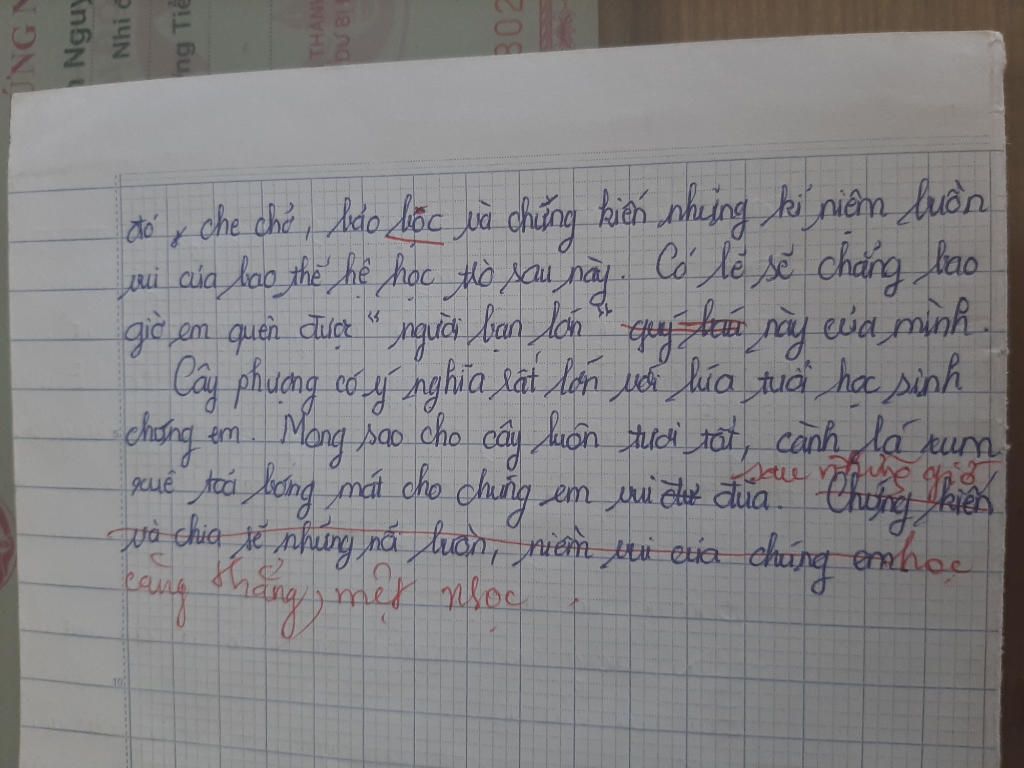 ỨNG N
n Nguy
Nhi đ
ng Tiề
THÀNH
DỰ BỊ
302
đó, che chở, bảo bộc và chứng kiến những kỉ niệm buồn
vui của bao thế hệ học trò sau này. Có lẽ sẽ chẳng bao
giờ em quên được "người bạn lớn" quý báu này của mình.
Cây phượng có ý nghĩa rất lớn với lứa tuổi học sinh
chúng em. Mong sao cho cây luôn tươi tốt, cành lá xum
sau những giờ
xuê toả bóng mát cho chúng em vui đùa. Chứng kiến
và chia sẻ những nỗi buồn, niềm vui của chúng em học
căng thẳng, mệt nhọc.
10